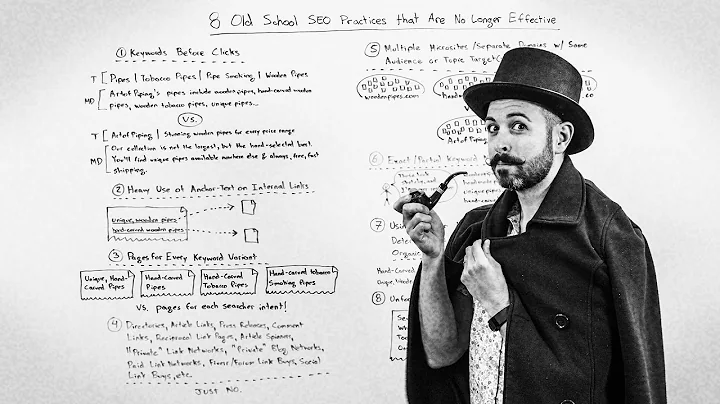 8 Old School SEO Practices that Are No Longer Effective
① Keywords Before Clicks
T [ Pipes | Tobacco Pipes | Pipe Smoking | Wooden Pipes
MD [ Art of Piping's pipes include wooden pipes, hand-carved wooden
pipes, wooden tobacco pipes, unique pipes...
VS.
T [ Art of Piping | Stunning wooden pipes for every price range
MD [ Our collection is not the largest, but the hand-selected best.
You'll find unique pipes available nowhere else & always, free, fast
shipping.
② Heavy Use of Anchor-Text on Internal Links
Unique, wooden pipes
hand-carved wooden pipes
③ Pages for Every Keyword Variant
Unique, Hand-
Carved Pipes
Hand-Carved
Pipes
Hand-Carved
Tobacco Pipes
Hand-carved tobacco
Smoking Pipes
VS. pages for each searcher intent!
④ Directories, Article Links, Press Releases, Comment
Links, Reciprocal Link Pages, Article Spinners,
"Private" Link Networks, "Private" Blog Networks,
Paid Link Networks, Fiverr/Forum Link Buys, Social
Link Buys, etc.
JUST NO.
⑤ Multiple Microsites/Separate Domains w/ Same
Audience or Topic Target
woodenpipes.com
Art of Piping
⑥ Exact/Partial Keyword
hand-carved
⑦
Organic
Hand-Carved
⑧